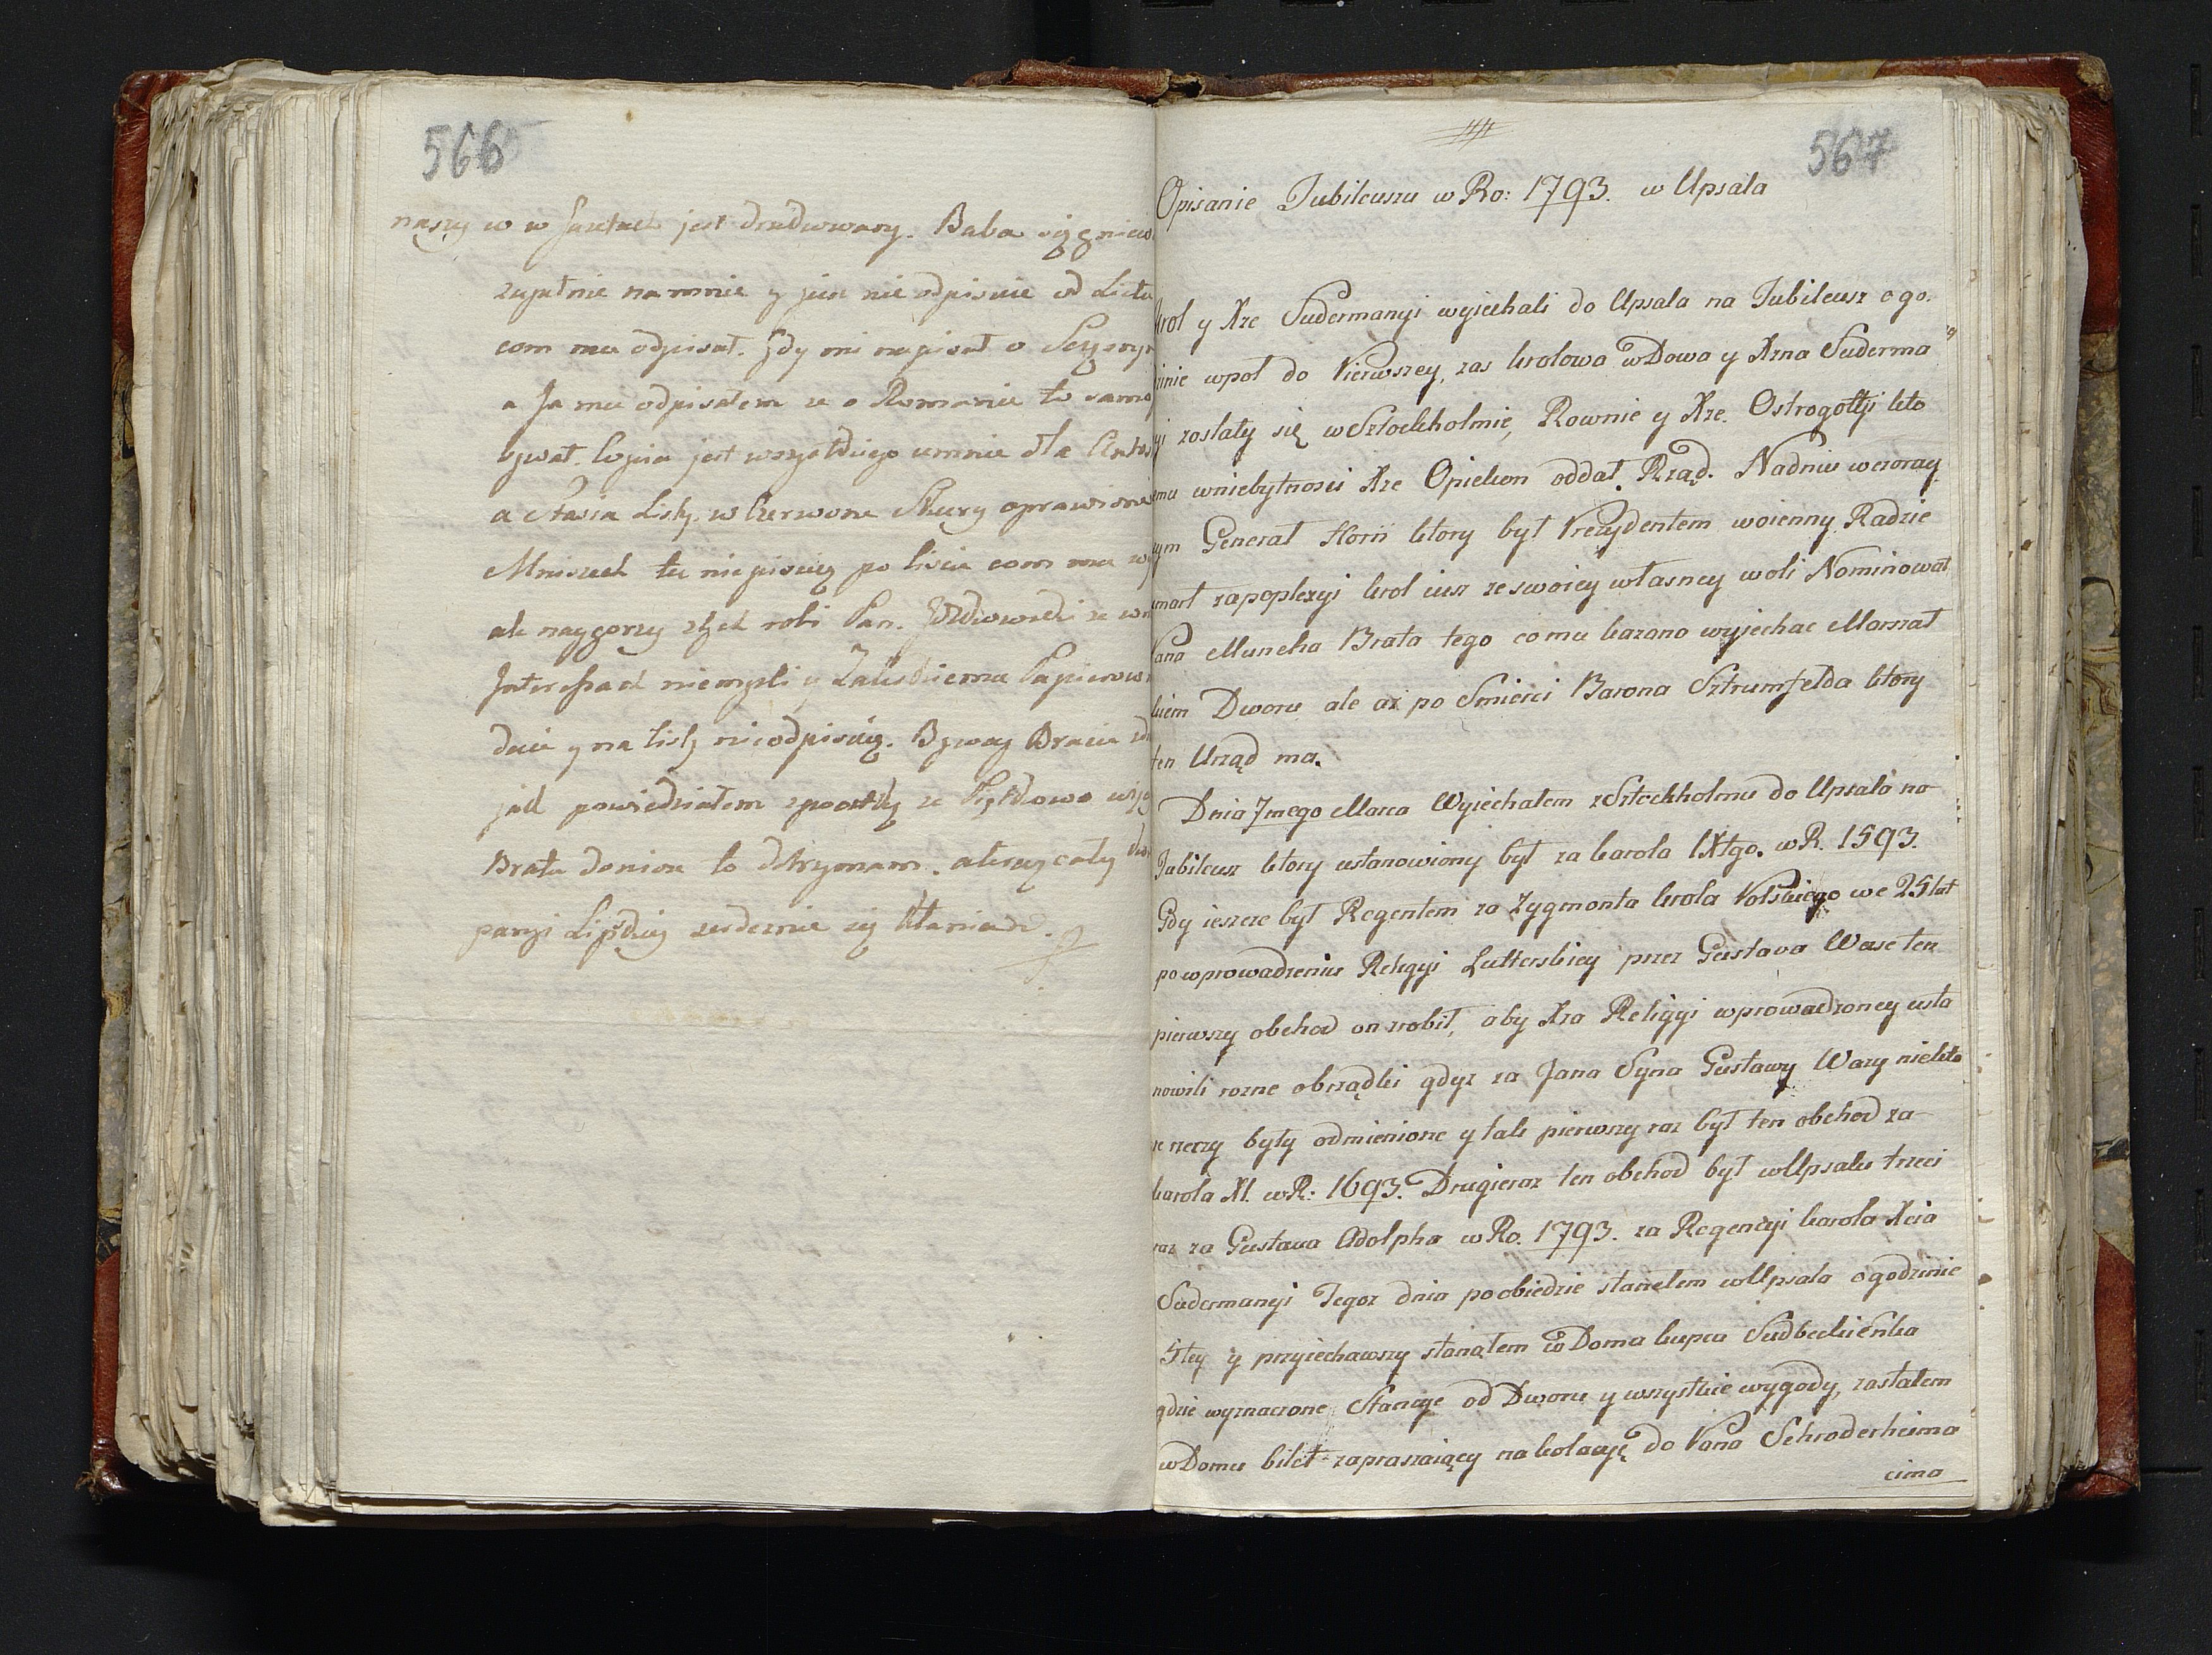 566
naszy co w Gazetach jest drukowany. Baba się gniew
zupełnie na mnie y jusz nie odpisuie od Listu
com mu odpisał. Gdy mi napisał o
a Ja mu odpisałem ze o Romanie to samo
bywał. Copia jest wszystkiego umnie dla
a Stasia Listy w Czerwone Skury oprawione
Mniszech tu niepisuię po liscie com mu
ale naygorzy złych robi Pan. ze
Interessach niemysli y Załuskiemu Papierow
daie y na listy nieodpisuię. Byway Bracie
jak powiedziałem ze
Brata donion to dotrzymam. ateraz cały
panyi Lipskiy serdecznie się kłaniać.
567
Opisanie Jubileuszu w Ro: 1793. w Upsala
krol y Xze Sudermanyi wyiechali do Upsala na Jubileusz ogo.
zinie wpoł do Pierwszey, zas krolowa wDowa y Xzna Suderma
yi zostały się wSztockholmie, Rownie y Xze. Ostrogotyi kto
emu wniebytnosci Xze Opiekun oddał Rząd. Nadniu wczoray
szym Generał Horn ktory był Prezydentem woienny Radzie
umarł zapoplexyi krol iusz ze swoiey własney woli Nominował
Pana Muncka Brata tego co mu kazano wyiechac Marszał
kiem Dworu ale az po Smierci Barona Sztrumfelda ktory
ten Urząd ma.
Dnia 7mego Marca Wyiechałem zSztockholmu do Upsala na
Jubileusz ktory ustanowiony był za karola IXtgo. wR. 1593.
Gdy ieszcze był Regentem za Zygmonta krola Polskiego we 25 lat
po wprowadzeniu Religyi Lutterskiey przez Gustava Wase ten
pierwszy obchod on zrobił, aby Xza Religyi wprowadzoney usta
nowili rozne obrządki gdyz za Jana Syna Gustawy Wazy niekto
re rzeczy były odmienione y tak pierwszy raz był ten obchod za
karola XI. wR: 1693. Drugieraz ten obchod był wUpsalu trzeci
raz za Gustava Adolpha wRo. 1793. za Regencyi karola Xcia
Sudermanyi Tegoz dnia poobiedzie stanelem wUpsala ogodzinie
5tey y przyiechawszy stanąłem w Doma kupca Sudbeckienka
gdzie wyznaczone Stancye od Dworu y wszystkie wygody, zastałem
wDomu bilet zapraszaiący nakolacyę do Pana Schroderheima
cima